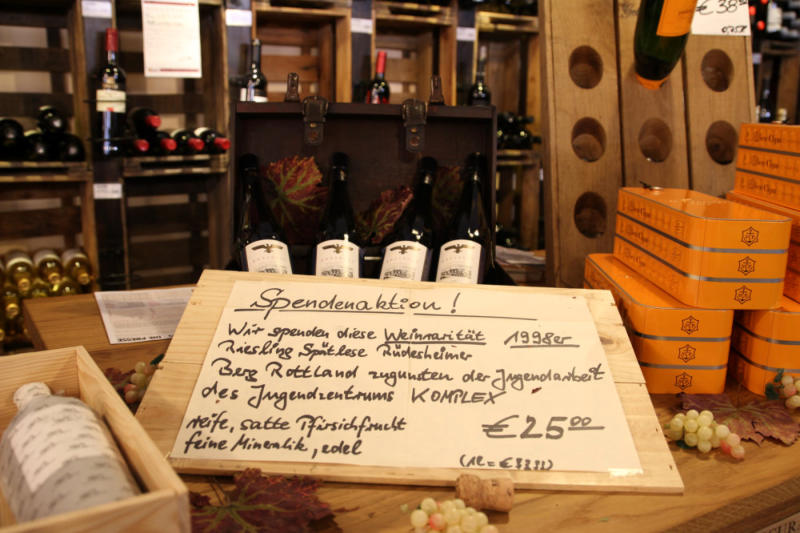 €38
0.75l
Spendenaktion!
Wir spenden diese Weinrarität 1998er
Riesling Spätlese Rüdesheimer
Berg Rottland zugunsten der Jugendarbeit
des Jugendzentrums KOMPLEX
reife, satte Pfirsichfrucht €25.00
feine Mineralik, edel
(1l = €33.33)